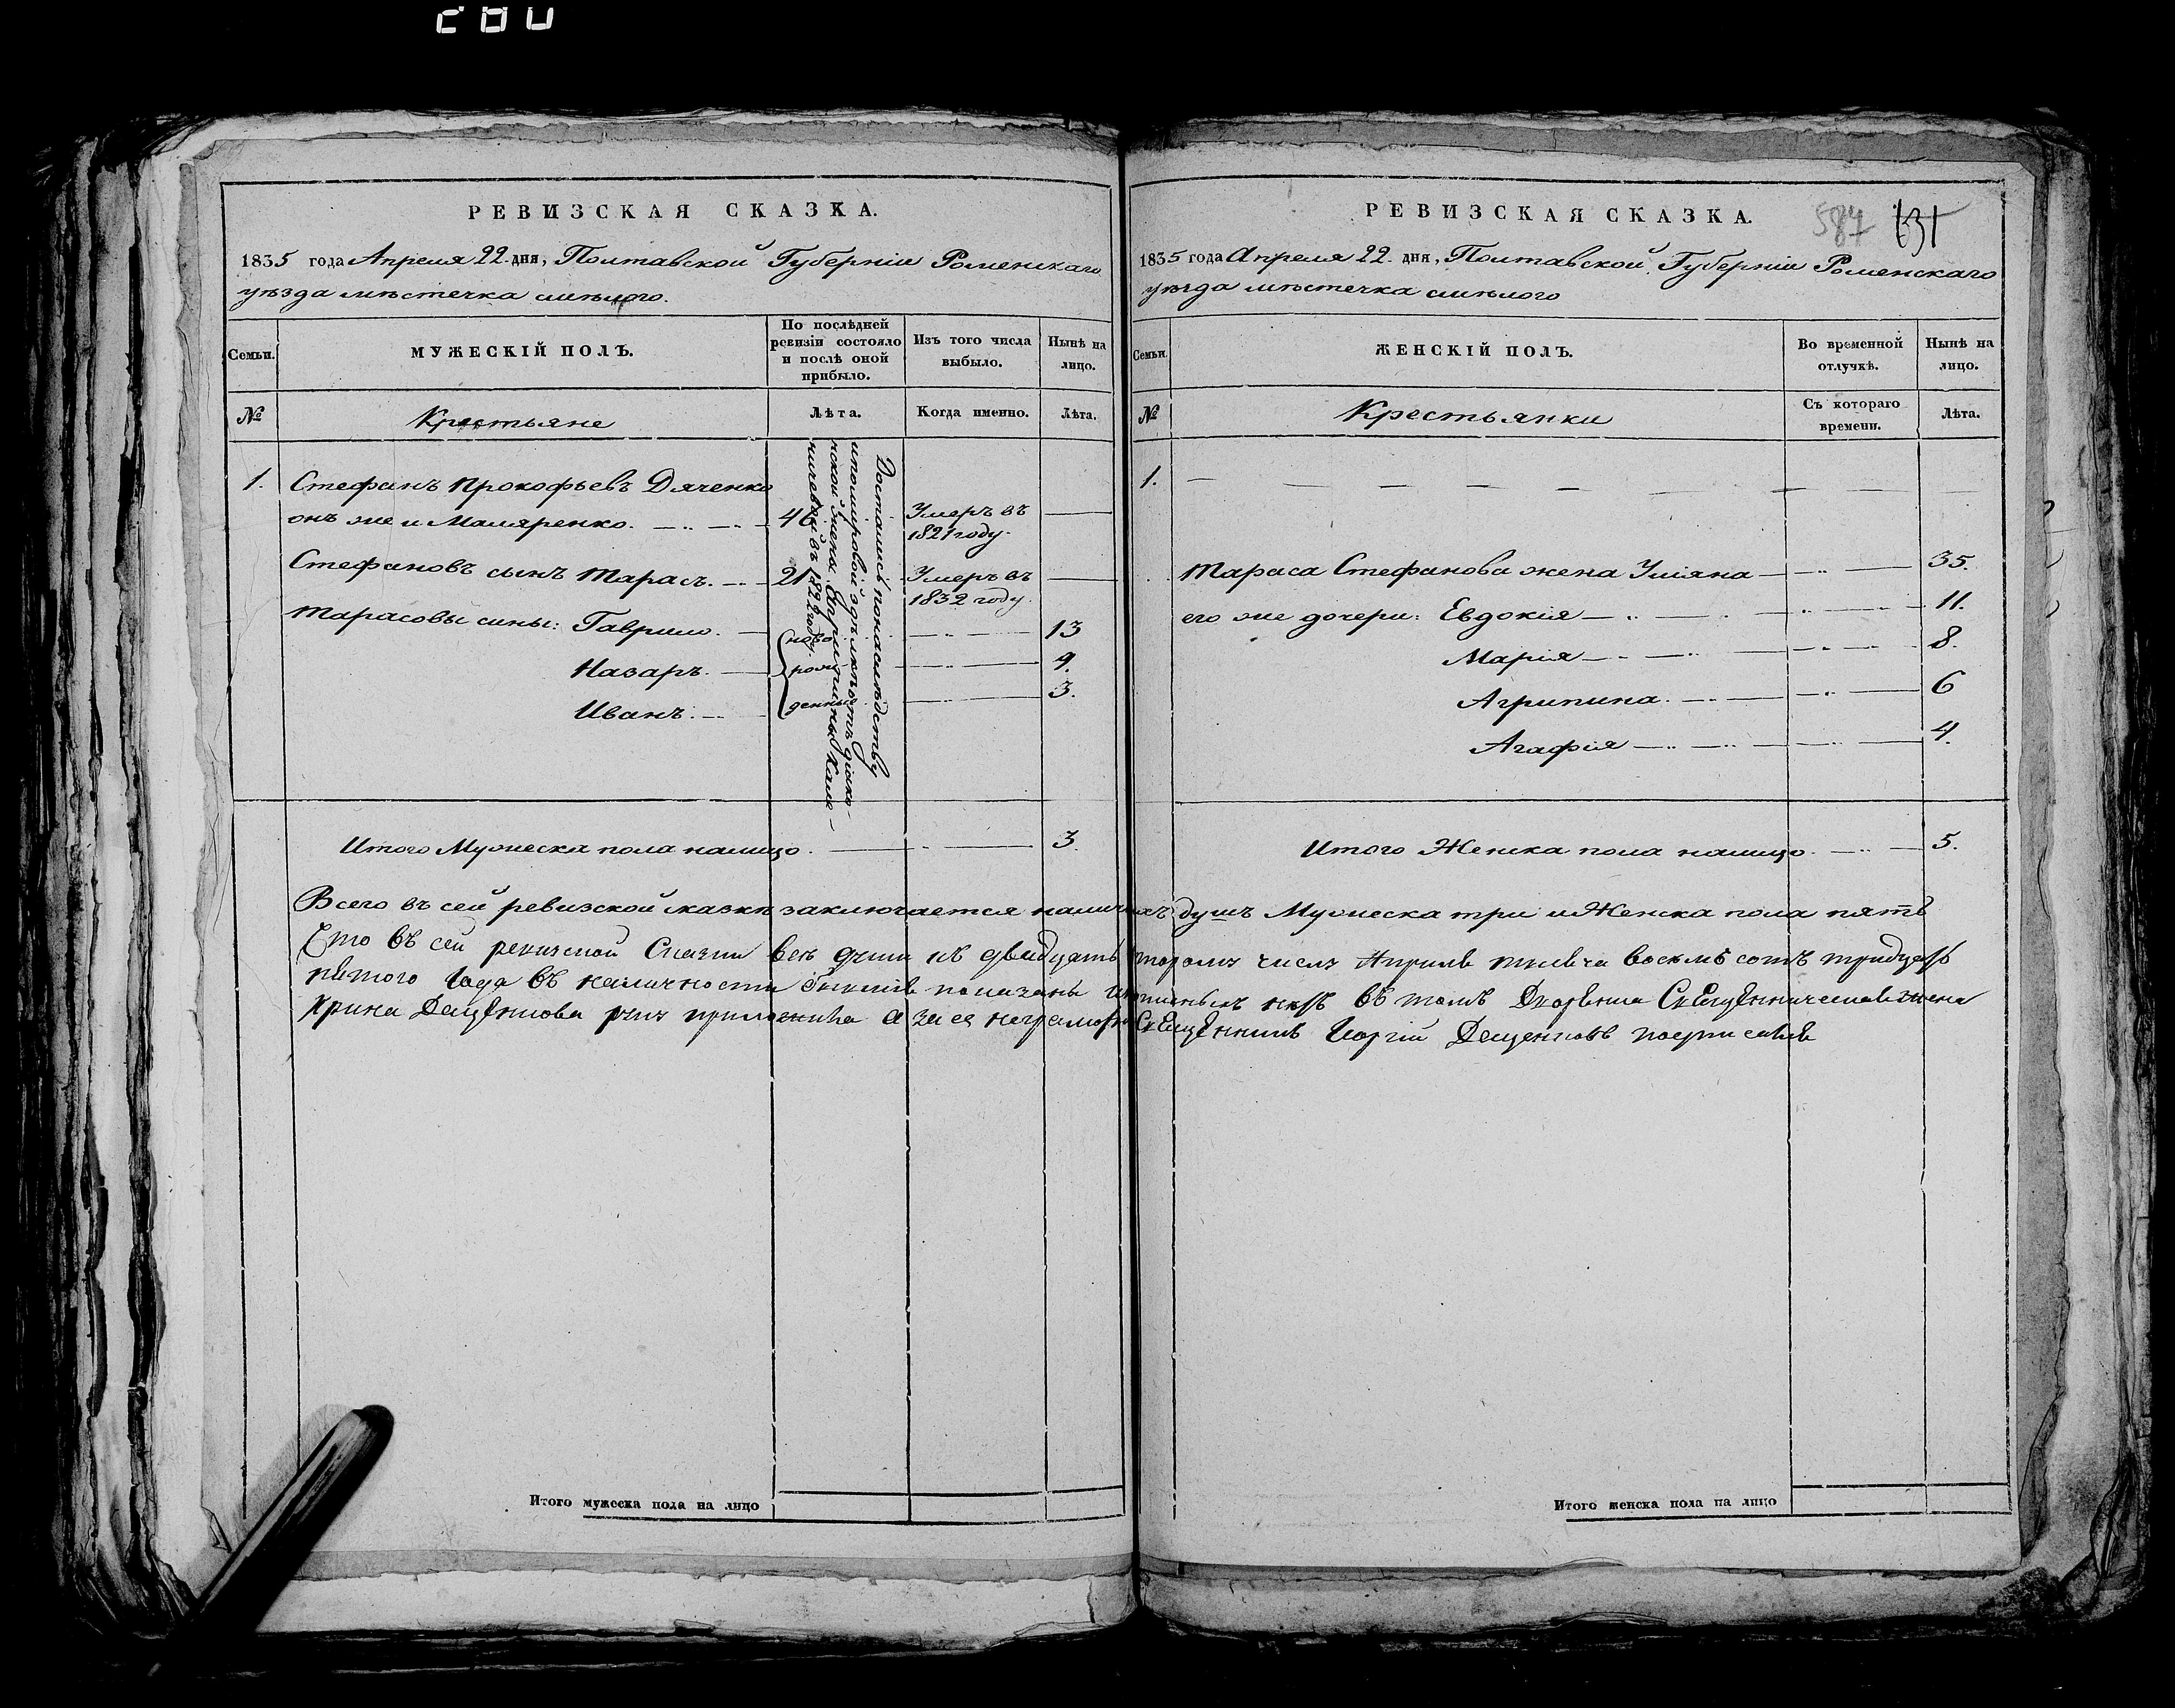 РЕВИЗСКАЯ СКАЗКА.
1835 года Апреля 22 дня, Полтавской Губерніи Роменскаго
уѣзда мѣстечка смѣлого.
Семьи.
МУЖЕСКІЙ ПОЛЪ.
По послѣдней
ревизіи состояло
и послѣ оной
прибыло.
Изъ того числа
выбыло.
Нынѣ на
лицо.
№
Крестьяне
Лѣта.
Когда именно.
Лѣта.
1.
Стефанъ Прокофьевъ Дяченко
онъ же и Маляренко.
46
Умеръ въ
1821 году.
Стефановъ сынъ Тарасъ.
21
Умеръ въ
1832 году.
Тарасовы сины: Гаврило.
ново
13
Назаръ.
рож
9.
Иванъ.
денны
3.
Достались по наслѣдству
и по мировой здѣлкѣ отъ діако-
нской жены Агрипины Кале-
ничевой въ 182 году.
Итого Мужеска пола налицо.
3.
РЕВИЗСКАЯ СКАЗКА.
587
631
1835 года Апреля 22 дня, Полтавской Губерніи Роменскаго
уѣзда мѣстечка смѣлого
Семьи.
ЖЕНСКІЙ ПОЛЪ.
Во временной
отлучкѣ.
Нынѣ на
лицо.
№
Крестьянки
Съ котораго
времени.
Лѣта.
1.
Тараса Стефанова жена Уліяна
35.
его же дочери: Евдокія
11.
Марія
8.
Агрипина.
6
Агафія
4.
Итого Женска пола налицо.
5.
Всего въ сей ревизской сказкѣ заключается наличныхъ душъ Мужеска три и Женска пола пять
Что въ сей ревизской Сказки всѣ души къ двадцать второмъ числѣ Априля тисяча восемъ сотъ тридцать
пятого года въ наличности бывшие показаны и нѣтъ въ томъ Дворянка Священническая жена
Ирина Деценкова руку приложила а за ея неграмотну Священникъ Георгій Деценковъ подписалъ
Итого мужеска пола на лицо
Итого женска пола на лицо